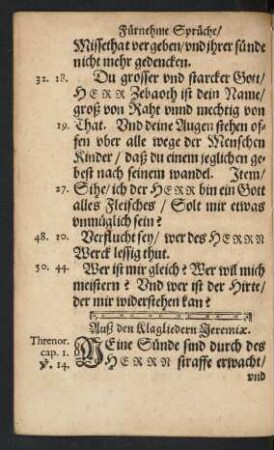 Fürnehme Sprüche/
Missethat vergeben/ vnd jhrer sünde
nicht mehr gedencken.
32. 18. Du grosser vnd starcker Gott/
HERR Zebaoth ist dein Name/
groß von Raht vnnd mechtig von
19. That. Vnd deine Augen stehen of-
fen vber alle wege der Menschen
Kinder/ daß du einem jeglichen ge-
best nach seinem wandel. Item/
27. Sihe/ ich der HERR bin ein Gott
alles Fleisches/ Solt mir etwas
vnmüglich sein?
48. 10. Verflucht sey/ wer des HERRN
Werck lessig thut.
50. 44. Wer ist mir gleich? Wer wil mich
meistern? Vnd wer ist der Hirte/
der mir widerstehen kan?
Auß den Klagliedern Jeremiæ.
Threnor. MEine Sünde sind durch des
cap. 1. ℣. 14. HERRN straffe erwacht/
vnd